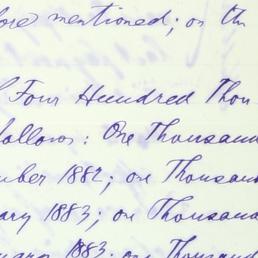 fore mentioned; on the
Four Hundred Thou
follows: One Thousand
mber 1882; one Thousand
ary 1883; one Thousand
nuary 1883; one Thousand